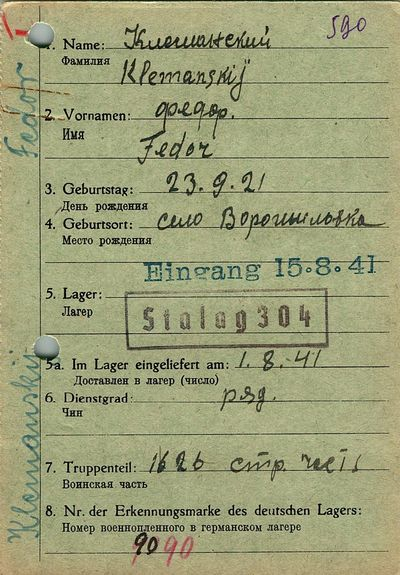 590
1. Name: Клеманский
Фамилия
Klemanskij
2. Vornamen: Федор.
Имя
Fedor
3. Geburtstag: 23.9.21
День рождения
4. Geburtsort: село Ворошиловка
Место рождения
Eingang 15.8.41
5. Lager:
Лагер
Stalag 304
5a. Im Lager eingeliefert am: 1.8.41
Доставлен в лагер (число)
6. Dienstgrad: ряд.
Чин
7. Truppenteil: 1626 стр. часть
Воинская часть
8. Nr. der Erkennungsmarke des deutschen Lagers:
Номер военнопленного в германском лагере
90 90
Klemanskij Fedor